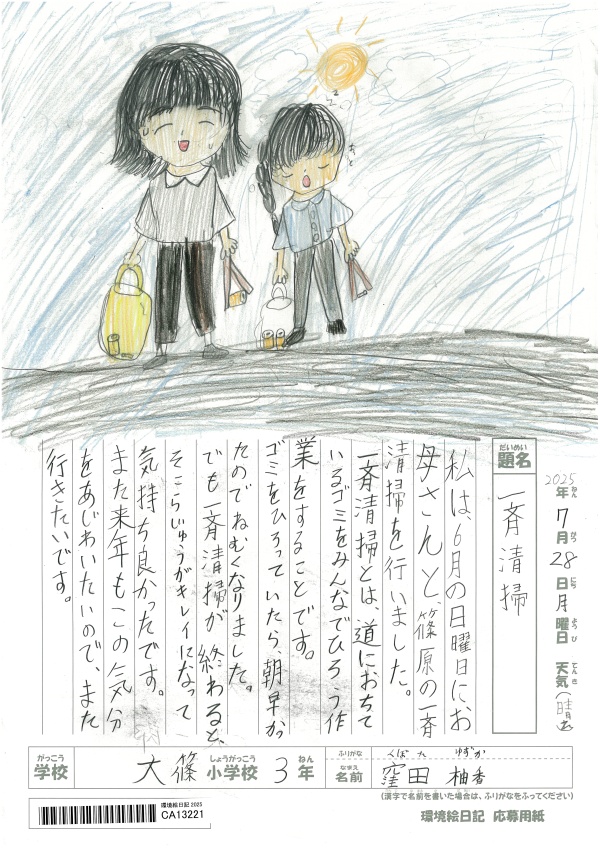 だいめい
題名
一斉清掃
2025年7月28日月曜日 天気(晴れ)
ねん
がつ
にち
ようび
てんき
私は、6月の日曜日に、お
母さんと、篠原の一斉
清掃を行いました。
一斉清掃とは、道におちて
いるゴミをみんなでひろう作
業をすることです。
ゴミをひろっていたら、朝早かっ
たのでねむくなりました。
でも一斉清掃が終わると、
そこらじゅうがキレイになって
気持ち良かったです。
また来年もこの気分
をあじわいたいので、また
行きたいです。
がっこう
学校
大篠
しょうがっこう
小学校
3
ねん
年
ふりがな
くぼた ゆずか
なまえ
名前
窪田 柚香
(漢字で名前を書いた場合は、ふりがなをふってください)
環境絵日記 2025
CA13221
環境絵日記 応募用紙